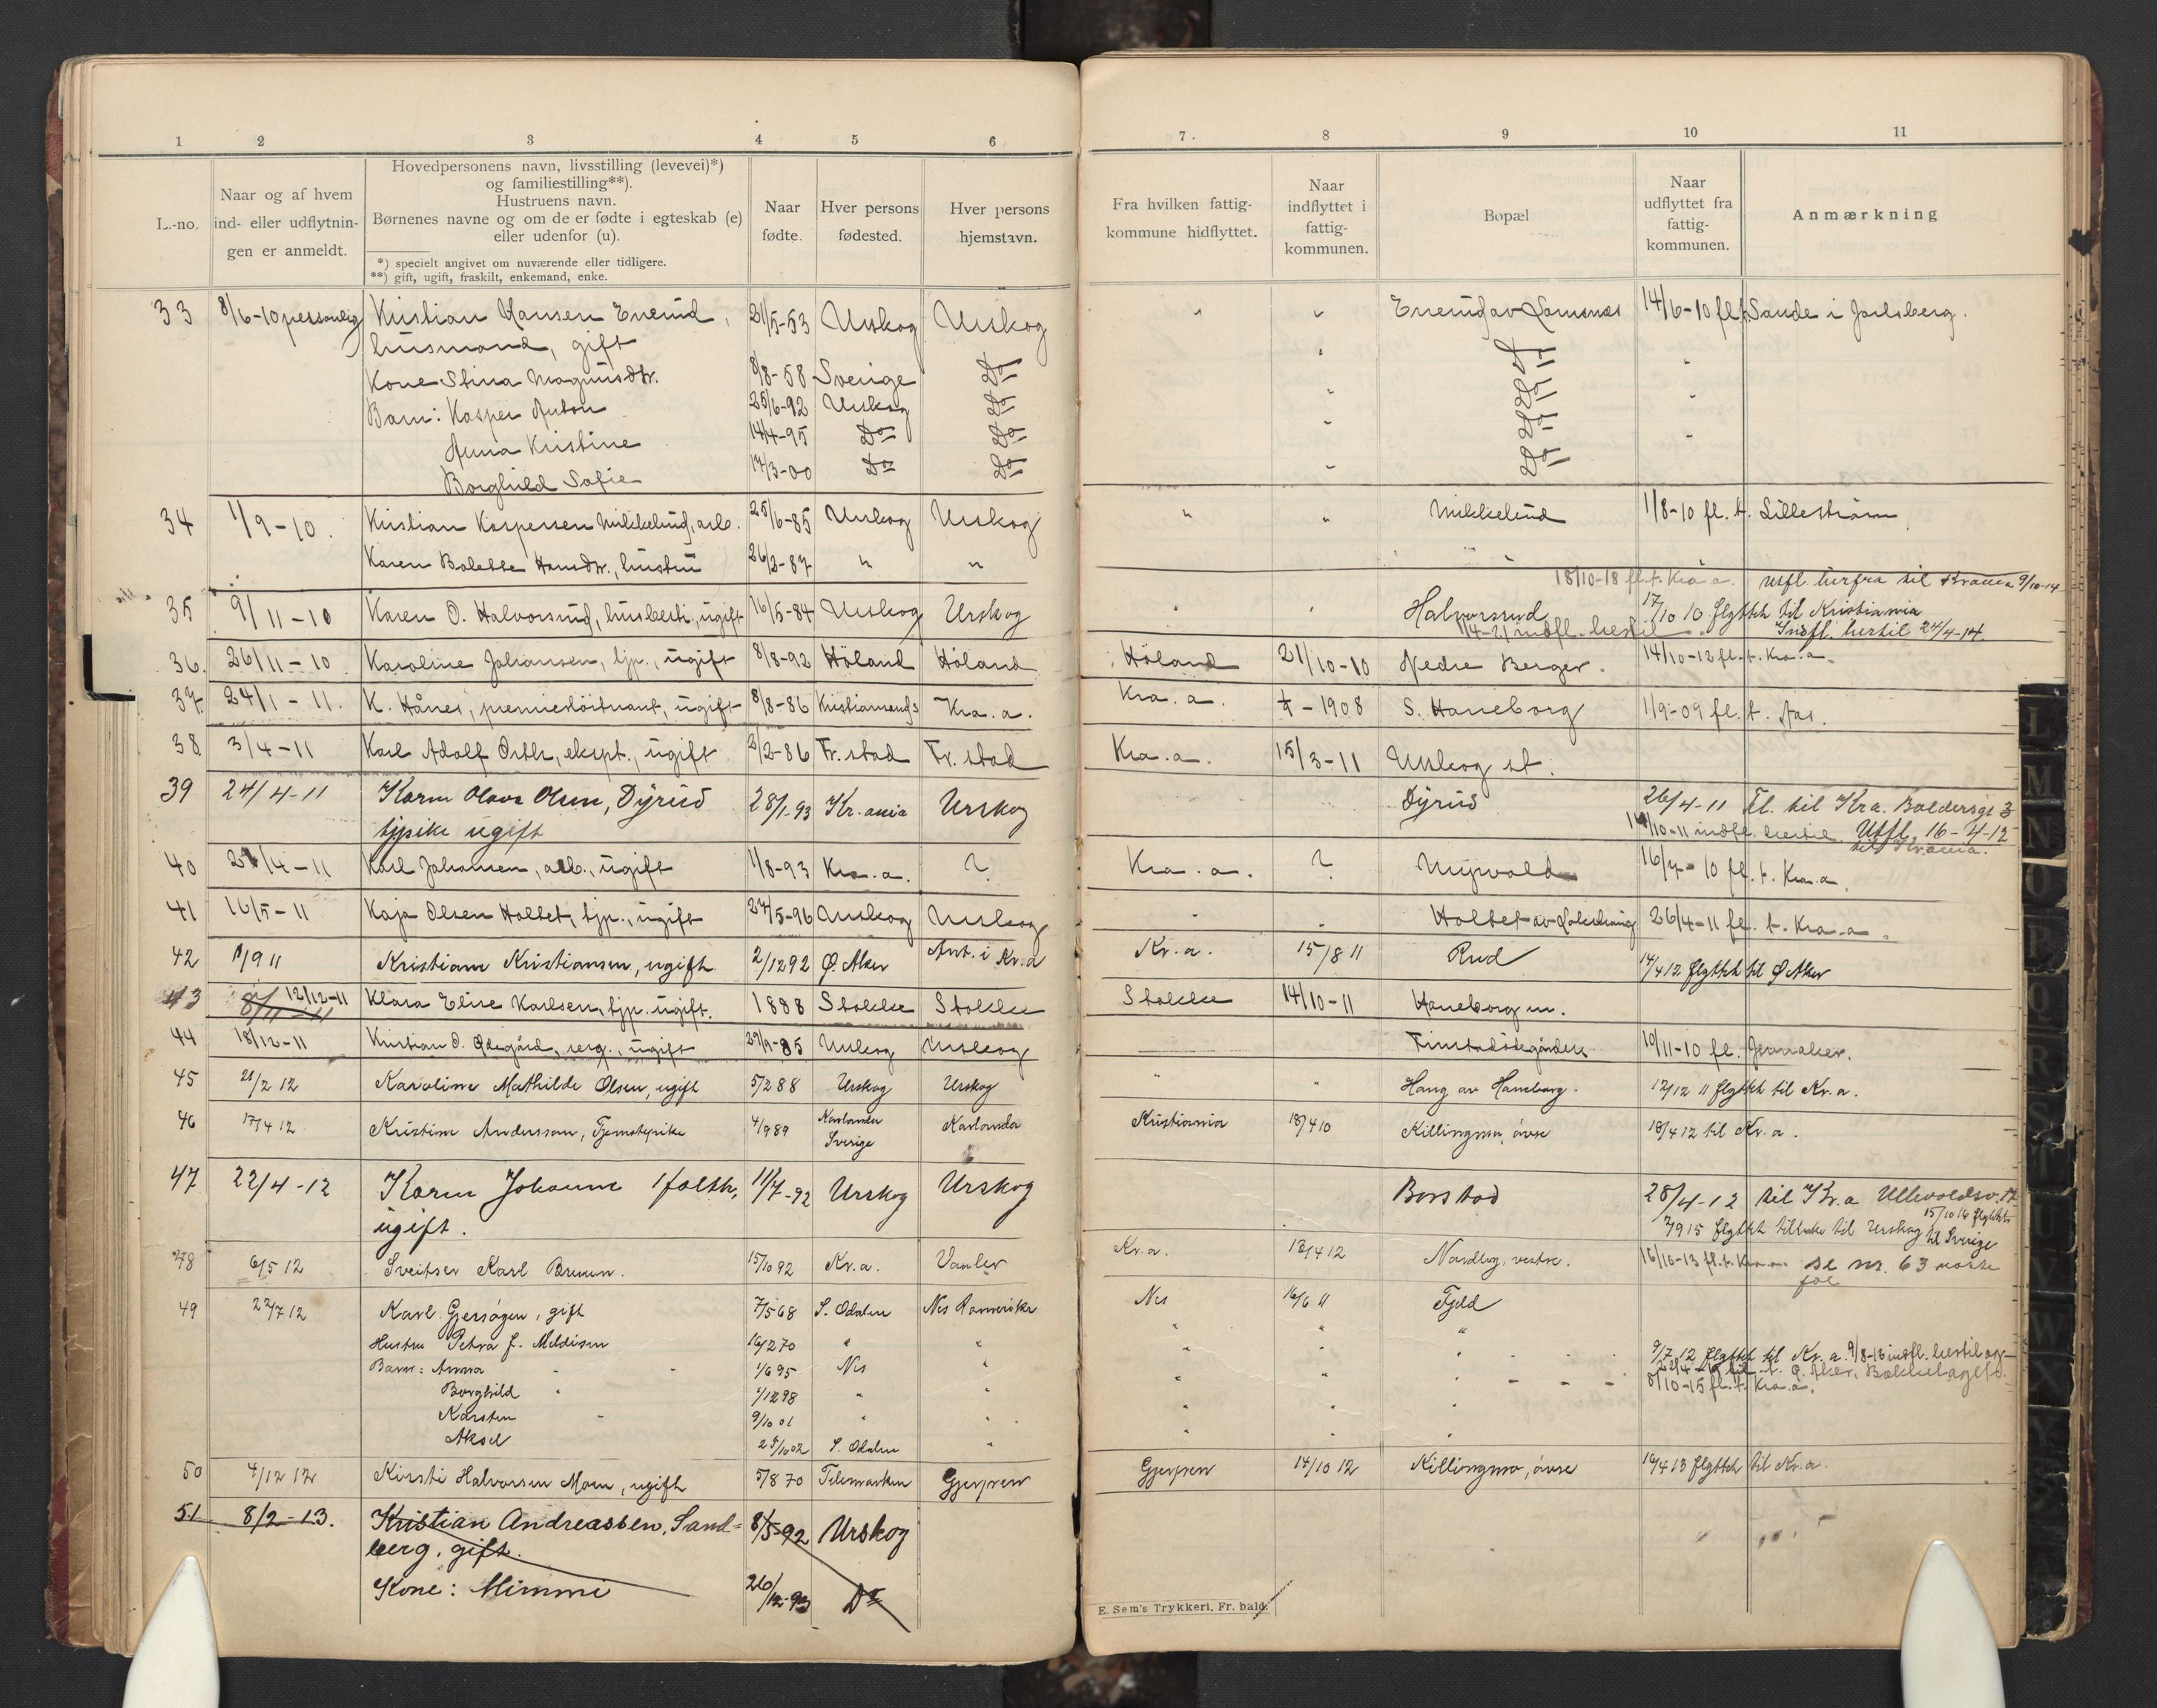 1 2 3 4 5 6 7. 8 9 10 11
L.-no.
Naar og af hvem
ind- eller udflytnin-
gen er anmeldt.
Hovedpersonens navn, livsstilling (levevei)*)
og familiestilling**).
Hustruens navn.
Børnenes navne og om de er fødte i egteskab (e)
eller udenfor (u).
*) specielt angivet om nuværende eller tidligere.
**) gift, ugift, fraskilt, enkemand, enke.
Naar
fødte.
Hver persons
fødested.
Hver persons
hjemstavn.
Fra hvilken fattig-
kommune hidflyttet.
Naar
indflyttet i
fattig-
kommunen.
Bopæl
Naar
udflyttet fra
fattig-
kommunen.
Anmærkning
33 8/6-10 personlig Kristian Hansen Enerud, 21/5-53 Urskog Urskog " " Enerud av 14/6-10 fl. t. Sande i Jarlsberg.
husmand, gift
Kone Stina Magnusdtr. 8/8-58 Sverige Do
Barn: Kasper Anton 25/6-92 Urskog Do
Anna Kristine 14/4-95 Do Do
Borghild Sofie 17/3-00 Do Do
34 1/9-10. Kristian Kaspersen Mikkelrud, arb. 25/6-85 Urskog Urskog " " Mikkelrud 1/8-10 fl. t. Lillestrøm
Karen Bolette Hansdtr., hustru 26/2-87 " "
18/10-18 fl. t. Kra.a. utfl. herfra til Krania 9/10-14
35 9/11-10 Karen O. Halvorsrud, husbest., ugift 16/5-84 Urskog Urskog Halvorsrud 17/10 10 flyttet til Kristiania
1/4-21 indfl. hertil Indfl. hertil 24/4-14
36. 26/11-10 Karoline Johansen, tjp., ugift 8/8-92 Höland Höland Höland 21/10-10 Nedre Berger. 14/10-12 fl. t. Kra.a.
37 24/1-11. K. Hånes, premierløitnant, ugift 8/8-86 Kristiansand S Kra.a. Kra.a. 1908 S. Haneborg 1/9-09 fl. t. Aas.
38 3/4-11 Karl Adolf ekspt., ugift 2/2-86 Fr.stad Fr.stad Kra.a. 15/3-11 Urskog st.
39 24/4-11 Karen Olava Olsen, Dyrud 28/1-93 Kr.ania Urskog Dyrud 26/4-11 Fl. til Kra. Baldersgt 3
tjpike ugift 10-11 indfl. hertil. Utfl. 16-4-12
til Krania.
40 /4-11 Karl Johansen, arb., ugift 1/8-93 Kra.a. ? Kra.a. ? 16/7-10 fl. t. Kra.a.
41 16/5-11 Kaja Olsen Holtet, tjp., ugift 27/5-96 Urskog Urskog Holtet av 26/4-11 fl. t. Kra.a.
42 1/9 11 Kristian Kristiansen, ugift 2/12 92 Ø. Aker Ant. i Kr.a Kr.a. 15/8 11 Rud 14/4 12 flyttet til Ø Aker
43 8/11-11 12/12-11 Klara Elise Karlsen, tjp. ugift. 1888 Stokke Stokke Stokke 14/10-11 Haneborg m.
44 18/12-11 Kristian O. Ødegård, ugift 29/9-85 Urskog Urskog Finstadødegården 10/11-10 fl.
45 21/2 12 Karoline Mathilde Olsen, ugift 5/2 88 Urskog Urskog " " Haug av Haneborg. 12/12 11 flyttet til Kr.a.
46 17/4 12 Kristine Andersson, Tjenstepike 4/9 89 Karlanda Karlanda Kristiania 18/4 10 Killingmo, övre 18/4 12 til Kr.a.
Sverige
47 22/4-12 Karen Johanne 11/7-92 Urskog Urskog Borstad 28/4-12 til Kr.a Ullevoldsv. 17
ugift. 7/9 15 flyttet tilbake til Urskog 15/10 16 flyttet
til Sverige
48 6/5 12 Sveitser Karl Bruun. 15/10 92 Kr.a. Vaaler Kr.a. 13/4 12 Nordby, vestre. 16/10-13 fl. t. Kra.a. se nr. 63
49 22/7 12 Karl Gjersøyen, gift 7/5 68 S. Odalen Nes Romerike Nes 16/6 11 Fjeld
Hustru Petra J. Meldisen 16/2 70 " "
Barn: Anna 1/6 95 Nes " 9/7 12 flyttet til Kr.a.
Borghild 1/12 98 " " 8/10-15 fl. t. Kra.a.
Karsten 9/10 01 " "
Aksel 25/10 02 S. Odalen "
50 4/12 12 Kirsti Halvorsen Moen, ugift 5/8 70 Telemarken Gjerpen Gjerpen 14/10 12 Killingmo, övre 16/4 13 flyttet til Kr.a.
51 8/2-13. Kristian Andreassen, Sand-
berg, gift. 8/5-92 Urskog
Kone: Mimmi 26/12-93 Do
E. Sem's Trykkeri, Fr.hald.
L
M
N
O
P
Q
R
S
T
U
V
W
X